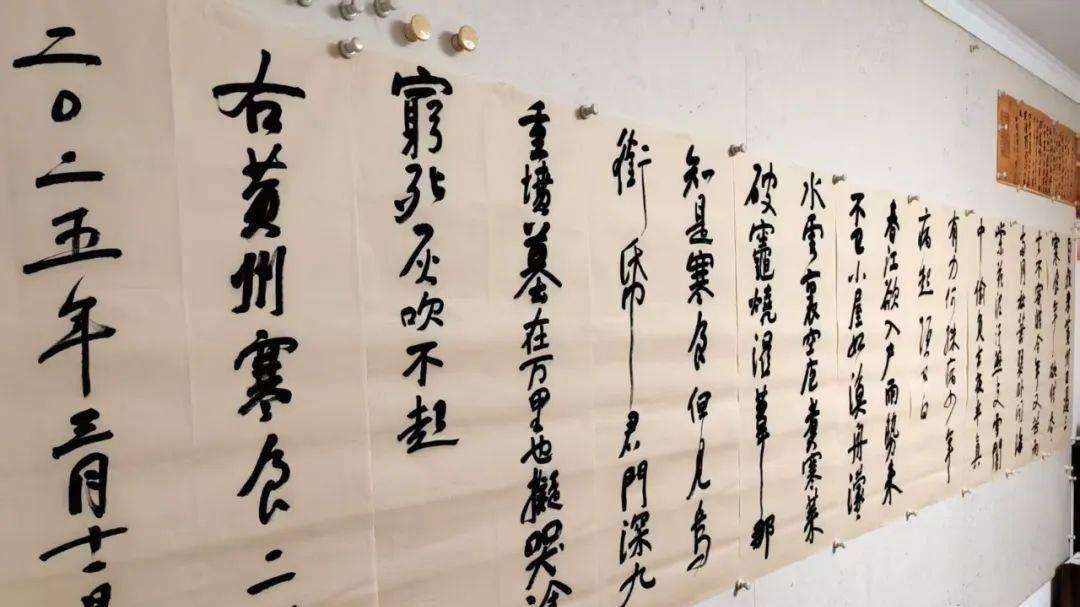 自我来黄州已過三
寒食年年欲惜春
去不容惜今年又苦雨
兩月秋蕭瑟卧聞海
棠花泥汙燕支雪闇
中偷負去夜半真
有力何殊病少年
病起頭已白
春江欲入户雨勢来
不已小屋如漁舟濛
水雲裏空庖煮寒菜
破竈燒濕葦那
知是寒食但見烏
銜帋君門深九
重墳墓在万里也擬哭塗
窮死灰吹不起
右黄州寒食二
二〇二五年三月十二日